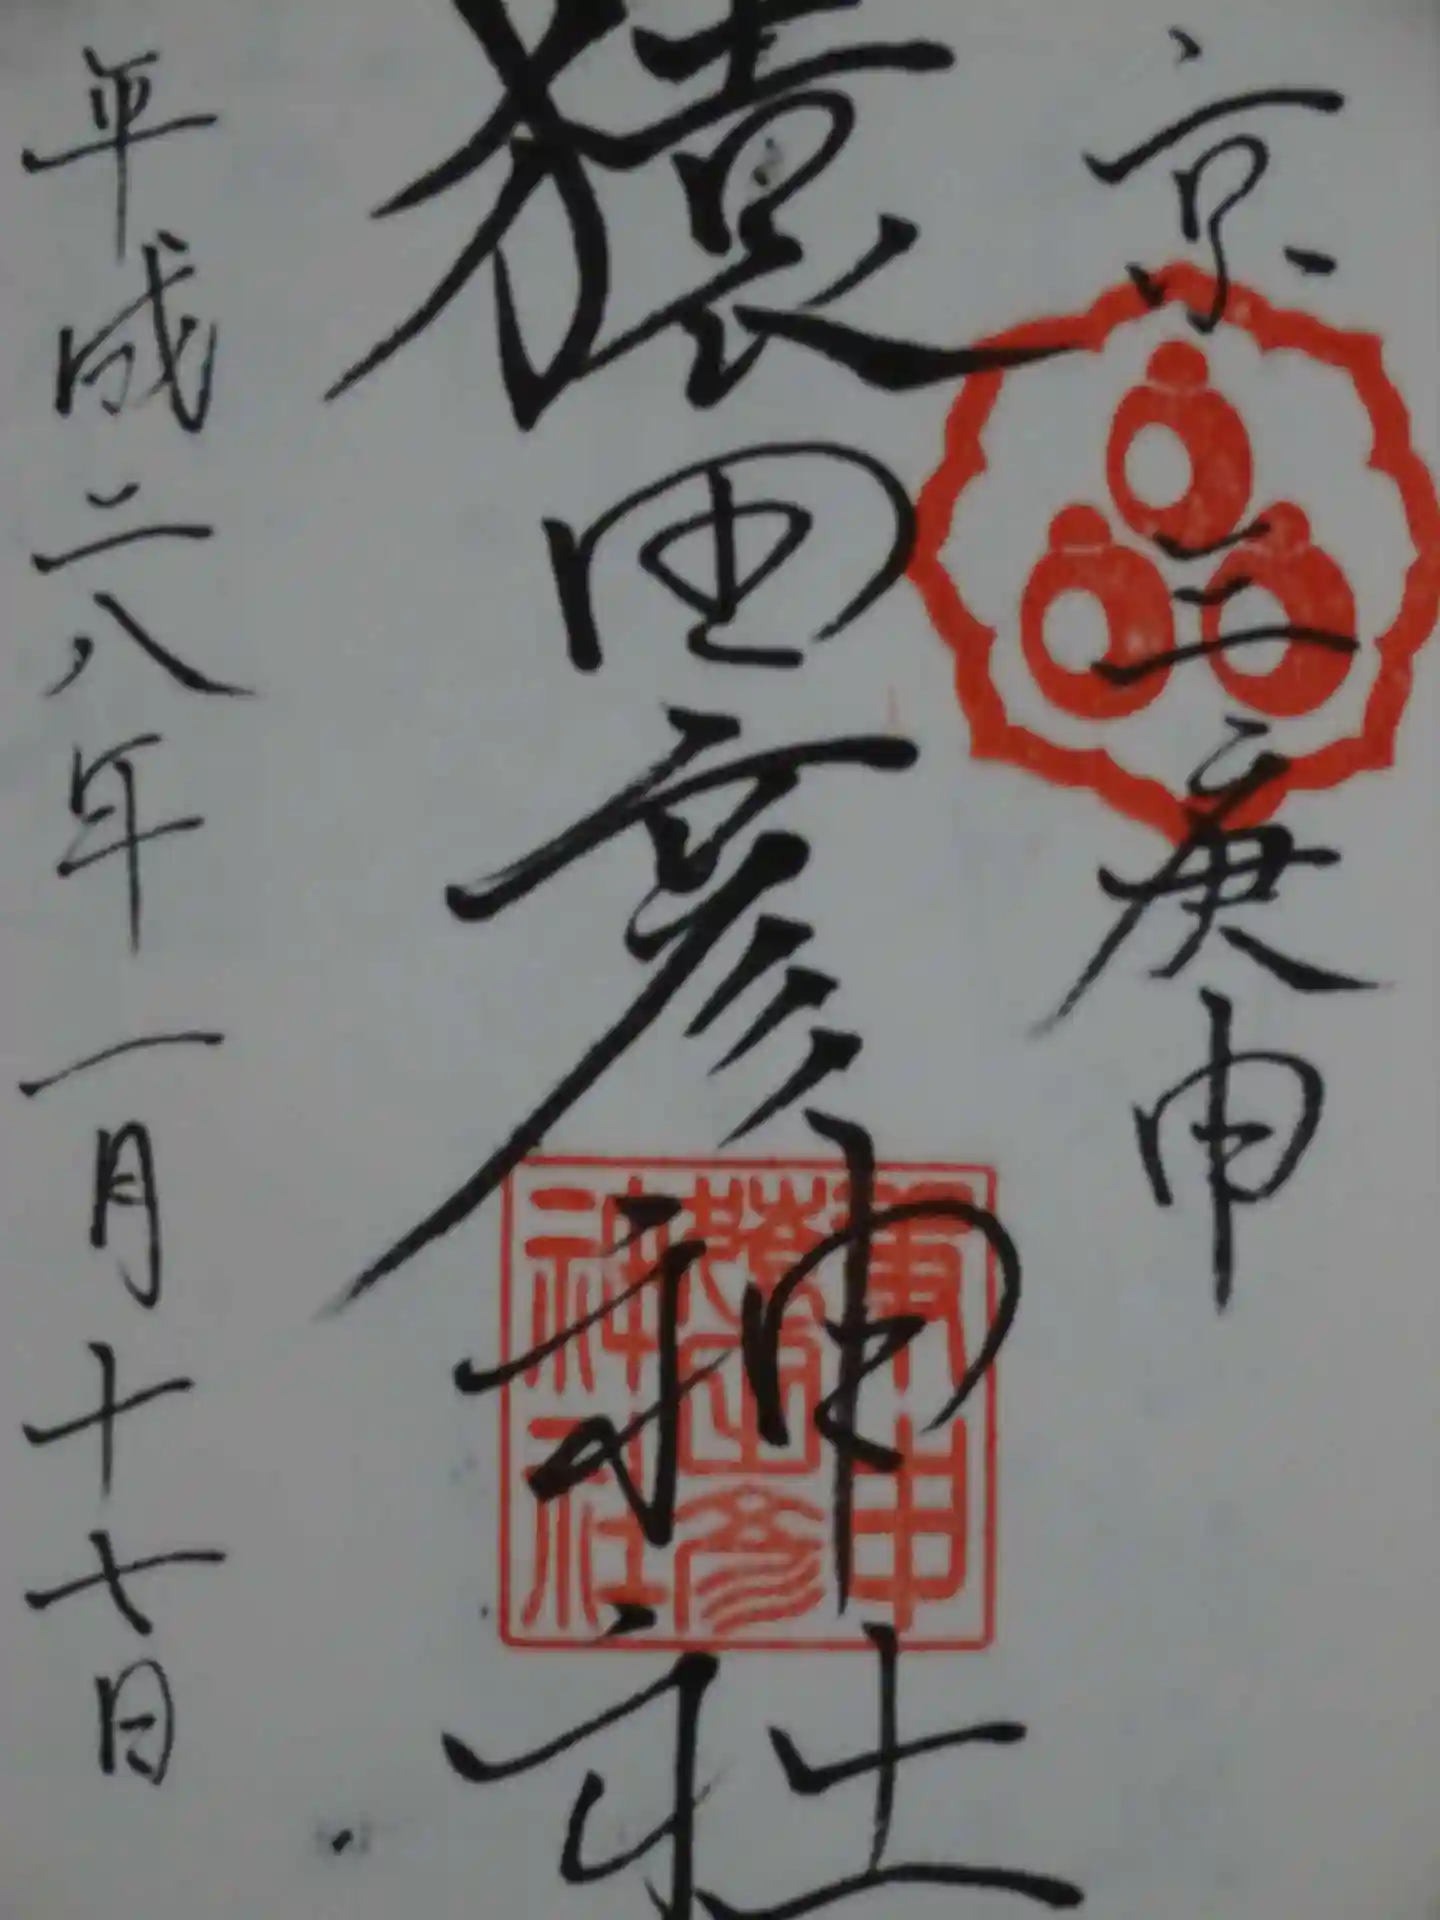 京三庚申
猿田彦神社
平成二八年一月十七日
庚申
猿田彦
神社